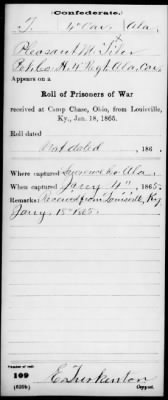 (Confederate.)
T. 4 Cav. Ala.
Pleasant M.
Appears on a
Roll of Prisoners of War
received at Camp Chase, Ohio, from Louisville,
Ky., Jan. 18, 1865.
Roll dated
Not dated, 186 .
Where captured Ala.
When captured Jany 4", 1865.
Remarks: Received from Louisville, Ky
Jany 18" 1865.
Number of roll:
109
(639b) Copyist.